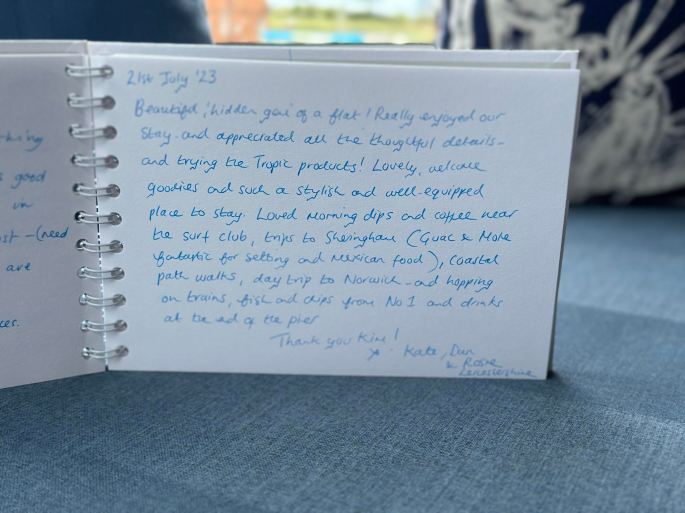 21st July '23
Beautiful, 'hidden gem' of a flat! Really enjoyed our
stay - and appreciated all the thoughtful details -
and trying the Tropic products! Lovely, welcome
goodies and such a stylish and well-equipped
place to stay. Loved morning dips and coffee near
the surf club, trips to Sheringham (Guac & Mole
fantastic for setting and Mexican food), coastal
path walks, day trip to Norwich - and hopping
on trains, fish and chips from No 1 and drinks
at the end of the pier
Thank you Kim!
x Kate, Dan
& Rosie
Leicestershire
s good
in
ost - (need
are